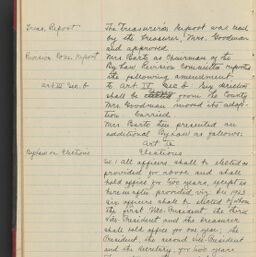 Treas. Report
The Treasurer's Report was read
by the Treasurer, Mrs. Goodman
and approved
Revision Com. Report
Mrs. Bartz as Chairman of the
By Law Revision Committee reported
the following amendment
Art III Sec. 6
to Art IV Sec 6: Any election
shall be from the County
Mrs. Goodman moved its adop-
tion. Carried
Mrs Bartz then presented an
additional By Law as follows:
Art IX
By Law on Elections
Elections
Sec 1 All officers shall be elected as
provided for above and shall
hold office for two years, except as
hereinafter provided viz. in 1923
six officers shall be elected of whom
the first Vice-President the third
Vice-President and the treasurer
shall hold office for one year; the
President, the second vice-President
and the secretary for two years